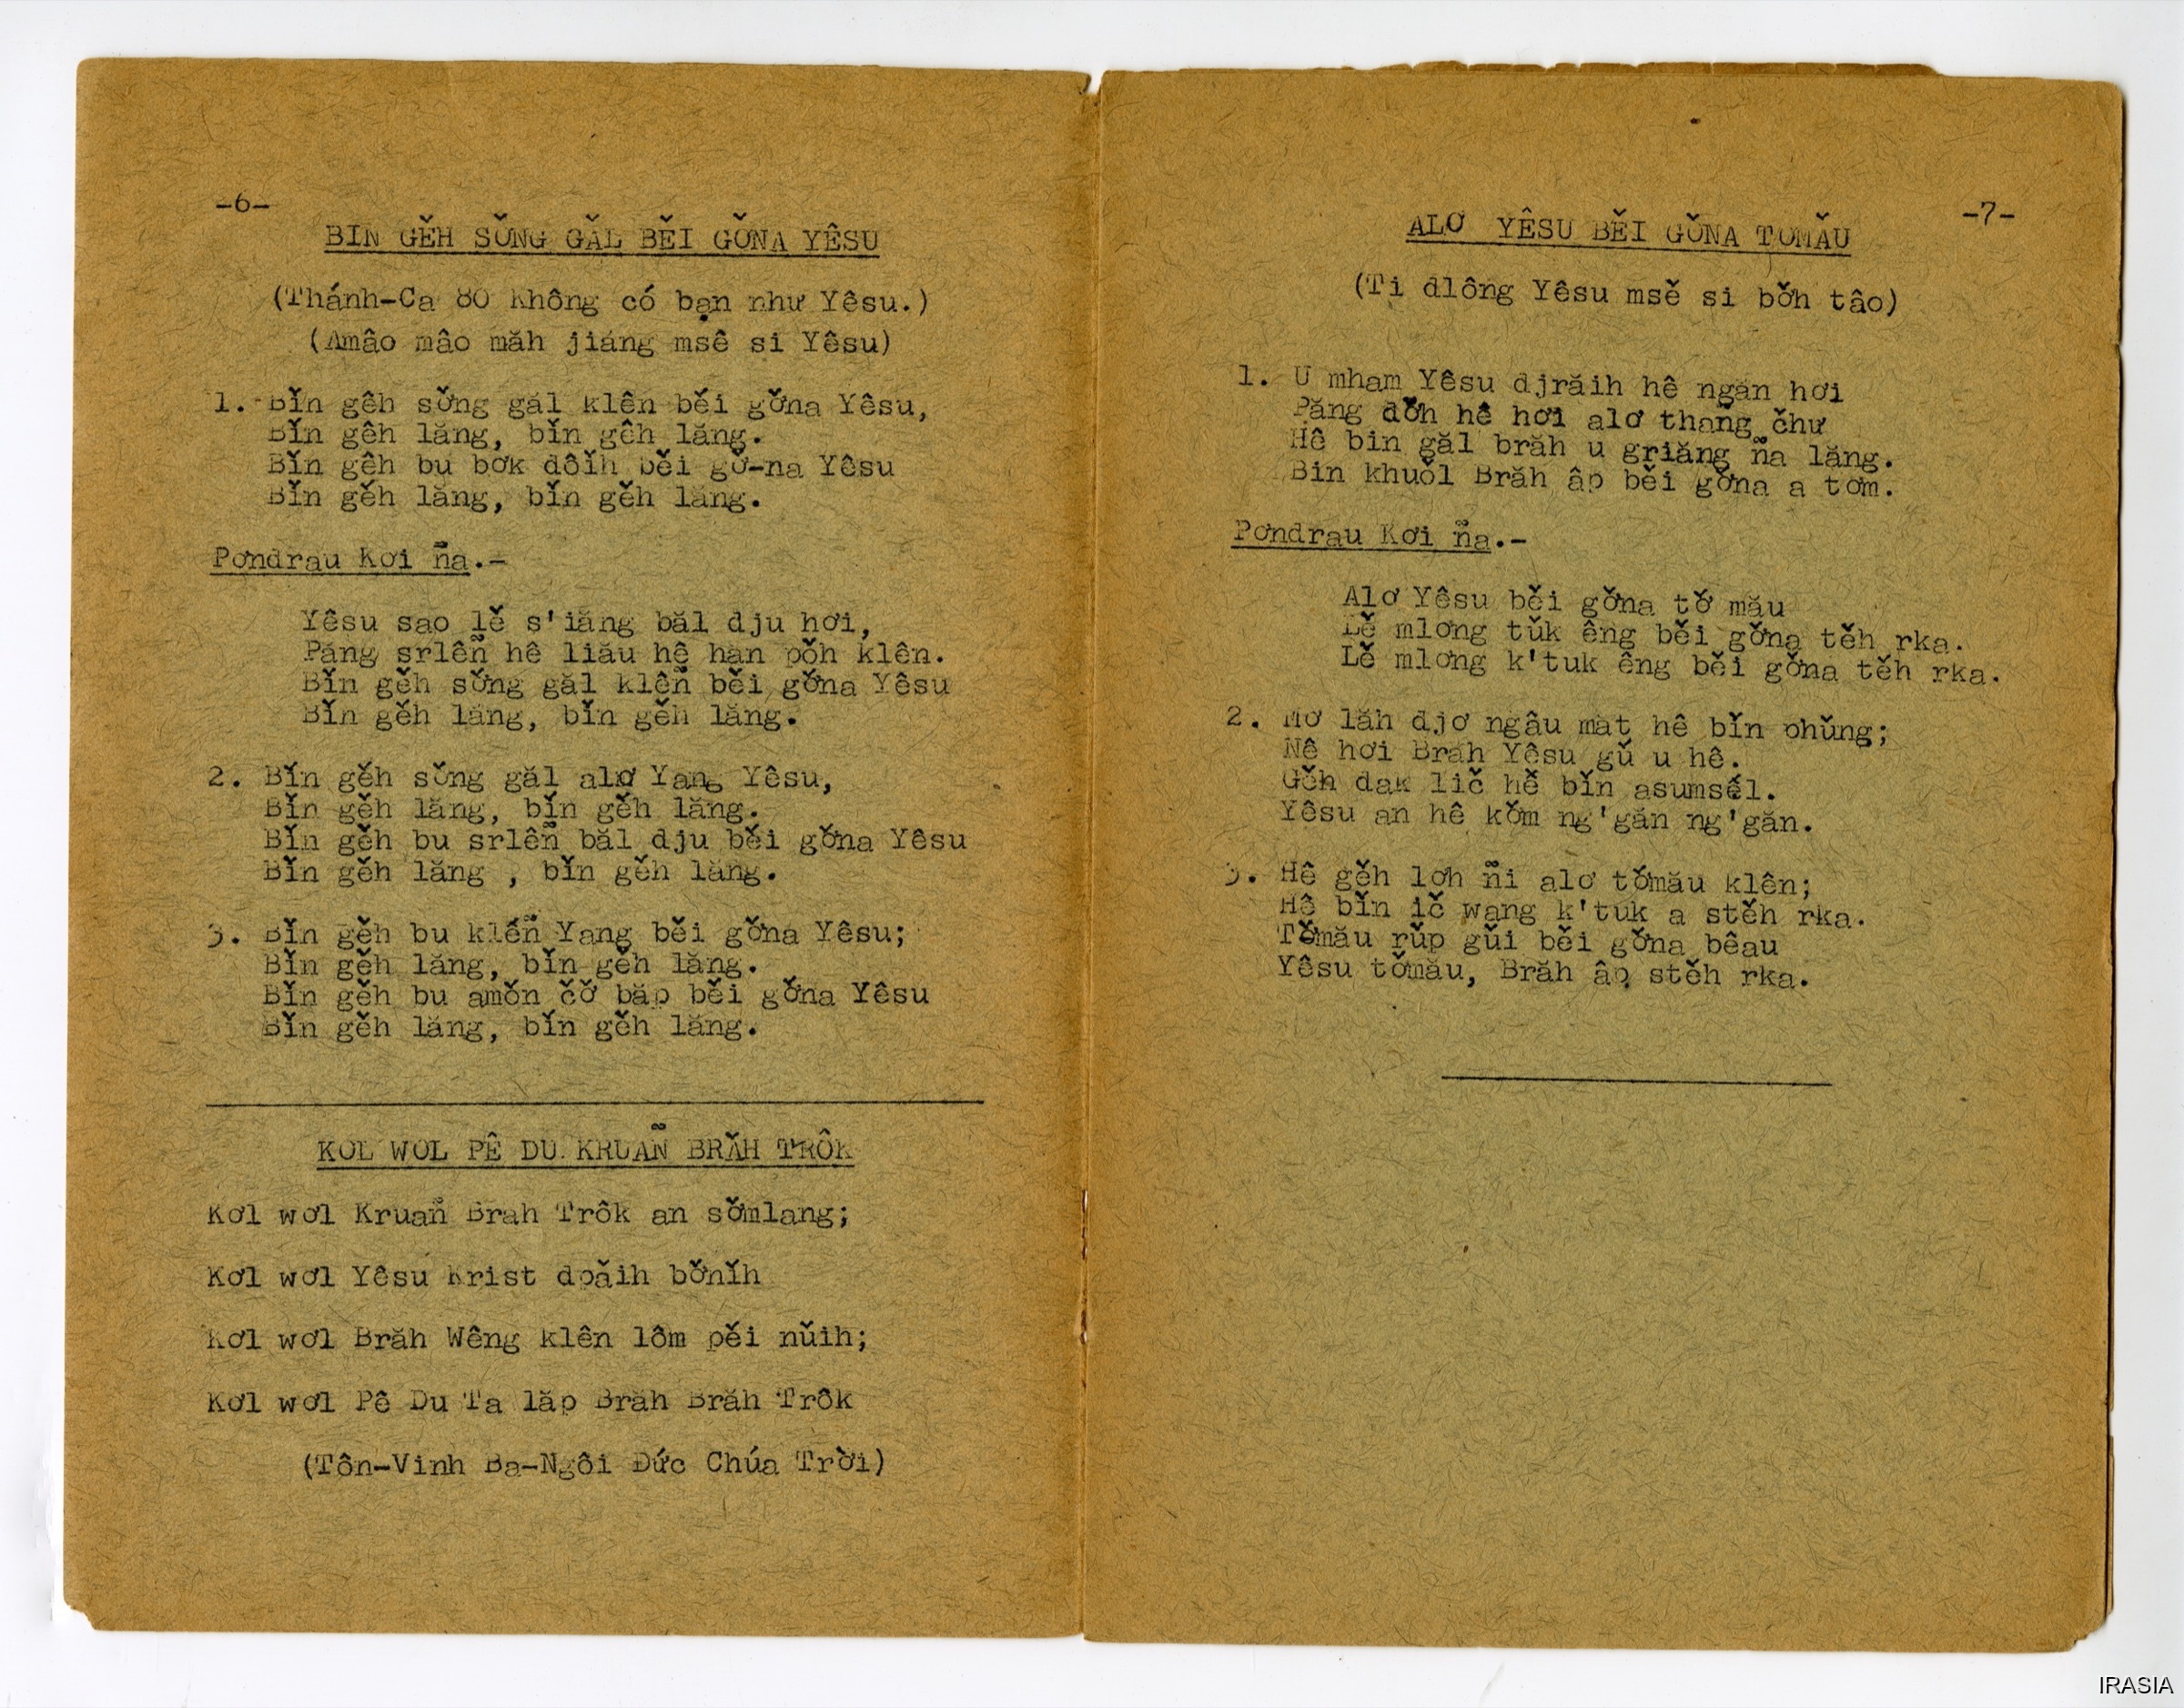 -6-
BIN GĔH SƠ̆NG GĂL BĔI GƠ̆NA YÊSU
(Thánh-Ca 80 Không có bạn như Yêsu.)
(Amâo mâo măh jiáng msê si Yêsu)
1. Bĭn gêh sơ̆ng găl klên bĕi gơ̆na Yêsu,
Bĭn gêh lăng, bĭn gêh lăng.
Bĭn gêh bu bơk dôĭh bĕi gơ̆-na Yêsu
Bĭn gĕh lăng, bĭn gĕh lăng.
Pơndrau Kơi ña.-
Yêsu sao lĕ s'iăng băl dju hơi,
Păng srlêñ hê liău hê hăn pŏh klên.
Bĭn gĕh sơ̆ng găl klêñ bĕi gơ̆na Yêsu
Bĭn gĕh lăng, bĭn gĕh lăng.
2. Bĭn gĕh sơ̆ng găl alơ Yang Yêsu,
Bĭn gĕh lăng, bĭn gĕh lăng.
Bĭn gĕh bu srlêñ băl dju bĕi gơ̆na Yêsu
Bĭn gĕh lăng , bĭn gĕh lăng.
3. Bĭn gĕh bu klêñ Yang bĕi gơ̆na Yêsu;
Bĭn gĕh lăng, bĭn gĕh lăng.
Bĭn gĕh bu amŏn čơ̆ băp bĕi gơ̆na Yêsu
Bĭn gĕh lăng, bĭn gĕh lăng.
KOL WOL PÊ DU KRUAÑ BRĂH TRÔK
Kơl wơl Kruañ Brah Trôk an sơ̆mlang;
Kơl wơl Yêsu Krist dpăih bơ̆nĭh
Kơl wơl Brăh Wêng klên lôm pĕi nŭih;
Kơl wơl Pê Du Ta lăp Brăh Brăh Trôk
(Tôn-Vinh Ba-Ngôi Đức Chúa Trời)
-7-
ALƠ YÊSU BĔI GƠ̆NA TƠMĂU
(Ti dlông Yêsu msĕ si bơ̆h tâo)
1. U mham Yêsu djrăih hê ngăn hơi
Păng dơ̆h hê hơi alơ thang čhư
Hê bin găl brăh u griăng ña lăng.
Bin khuŏl Brăh âp bĕi gơ̆na a tơm.
Pơndrau Kơi ña.-
Alơ Yêsu bĕi gơ̆na tơ̆ mău
Lĕ mlơng tŭk êng bĕi gơ̆na tĕh rka.
Lĕ mlơng k'tuk êng bĕi gơ̆na tĕh rka.
2. Mơ lăh djơ ngâu mat hê bĭn phŭng;
Nê hơi Brăh Yêsu gŭ u hê.
Gĕh dak lič hĕ bĭn asumsĕl.
Yêsu an hê kơ̆m ng'găn ng'găn.
3. Hê gĕh lơh ñi alơ tơ̆mău klên;
Hê bĭn ič wang k'tuk a stĕh rka.
Tơ̆mău rŭp gŭi bĕi gơ̆na bêau
Yêsu tơ̆mău, Brăh âp stĕh rka.
IRASIA